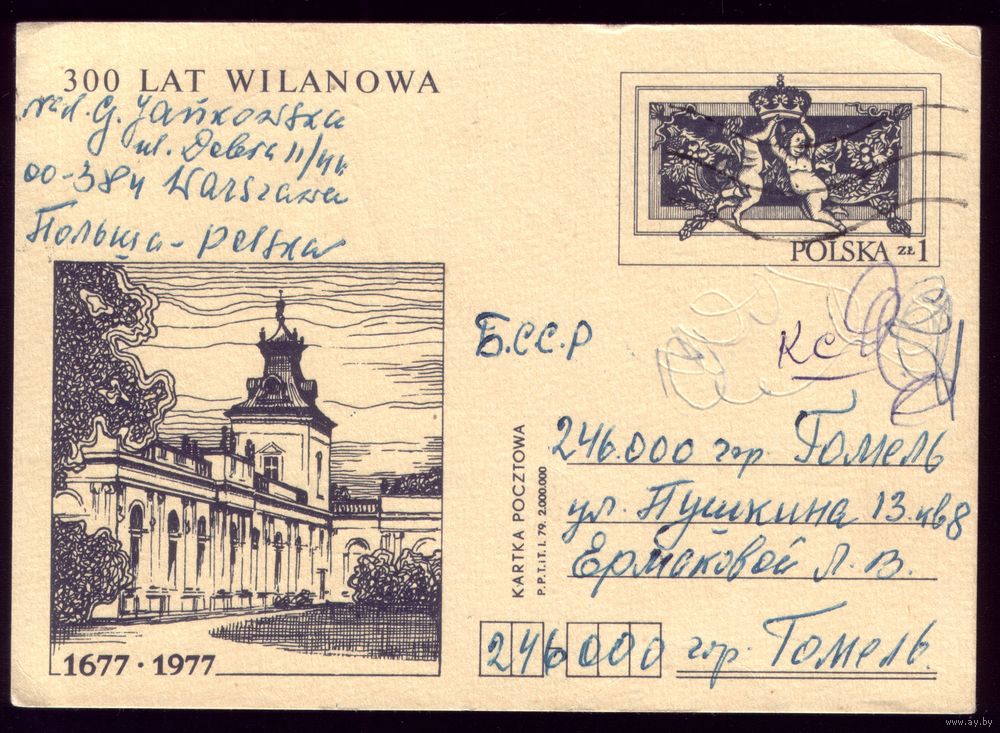 300 LAT WILANOWA
G. Jańkowska
ul. Dobra 11/44
00-384 Warszawa
Польща - Polska
POLSKA ZŁ 1
Б.С.С.Р
КС
246.000 гор. Гомель
ул. Пушкина 13. кв 8
Ермаковой Л. В.
246000 гор. Гомель.
KARTKA POCZTOWA
P.P.T.i.T. I. 79. 2.000.000
1677 · 1977
www.ay.by